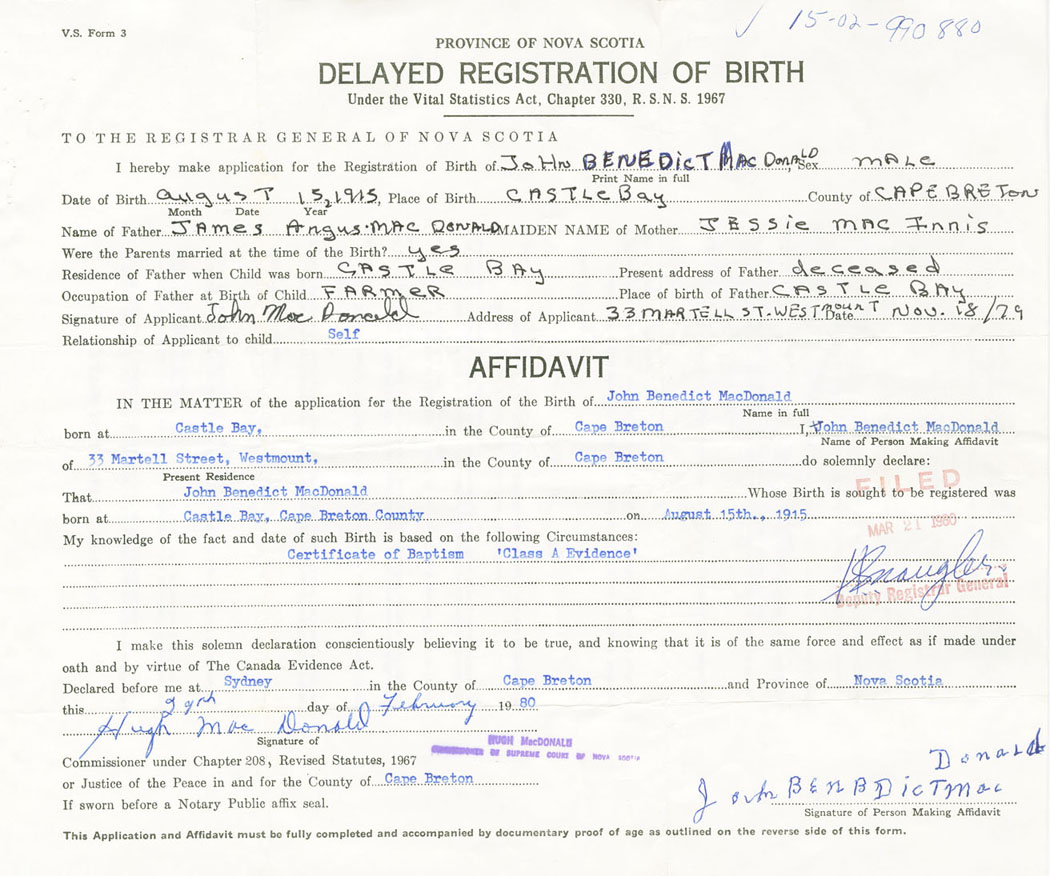 V.S. Form 3
15-02-990880
PROVINCE OF NOVA SCOTIA
DELAYED REGISTRATION OF BIRTH
Under the Vital Statistics Act, Chapter 330, R.S.N.S. 1967
TO THE REGISTRAR GENERAL OF NOVA SCOTIA
I hereby make application for the Registration of Birth of John BENEDicT MAC DonALD Sex MALe
Print Name in full
Date of Birth AuguST 15, 1915, Place of Birth CASTLE Bay County of CAPE BRETON
Month Date Year
Name of Father JAMes Angus MAC DONALD MAIDEN NAME of Mother JESSie MAC Innis
Were the Parents married at the time of the Birth? yes
Residence of Father when Child was born CASTLE BAY Present address of Father deceased
Occupation of Father at Birth of Child FARMER Place of birth of Father CASTLE BAy
Signature of Applicant John Mac Donald Address of Applicant 33 MARTELL ST. WESTMounT Date Nov. 18/79
Relationship of Applicant to child Self
AFFIDAVIT
IN THE MATTER of the application for the Registration of the Birth of John Benedict MacDonald
Name in full
born at Castle Bay, in the County of Cape Breton I, John Benedict MacDonald
Name of Person Making Affidavit
of 33 Martell Street, Westmount, in the County of Cape Breton do solemnly declare:
Present Residence
FILED
That John Benedict MacDonald Whose Birth is sought to be registered was
born at Castle Bay, Cape Breton County on August 15th., 1915
MAR 21 1980
My knowledge of the fact and date of such Birth is based on the following Circumstances:
Certificate of Baptism 'Class A Evidence'
Deputy Registrar General
I make this solemn declaration conscientiously believing it to be true, and knowing that it is of the same force and effect as if made under
oath and by virtue of The Canada Evidence Act.
Declared before me at Sydney in the County of Cape Breton and Province of Nova Scotia
this day of February 19 80
Hugh Mac Donald
Signature of
HUGH MacDONALD
COMMISSIONER OF SUPREME COURT OF NOVA SCOTIA
Commissioner under Chapter 208, Revised Statutes, 1967
or Justice of the Peace in and for the County of Cape Breton
If sworn before a Notary Public affix seal.
Donald
John BENBDicT Mac
Signature of Person Making Affidavit
This Application and Affidavit must be fully completed and accompanied by documentary proof of age as outlined on the reverse side of this form.